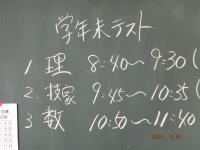 学年末テスト
1. 理 8:40〜9:30 (
2. 技家 9:45〜10:35 (
3 数 10:50〜11:40